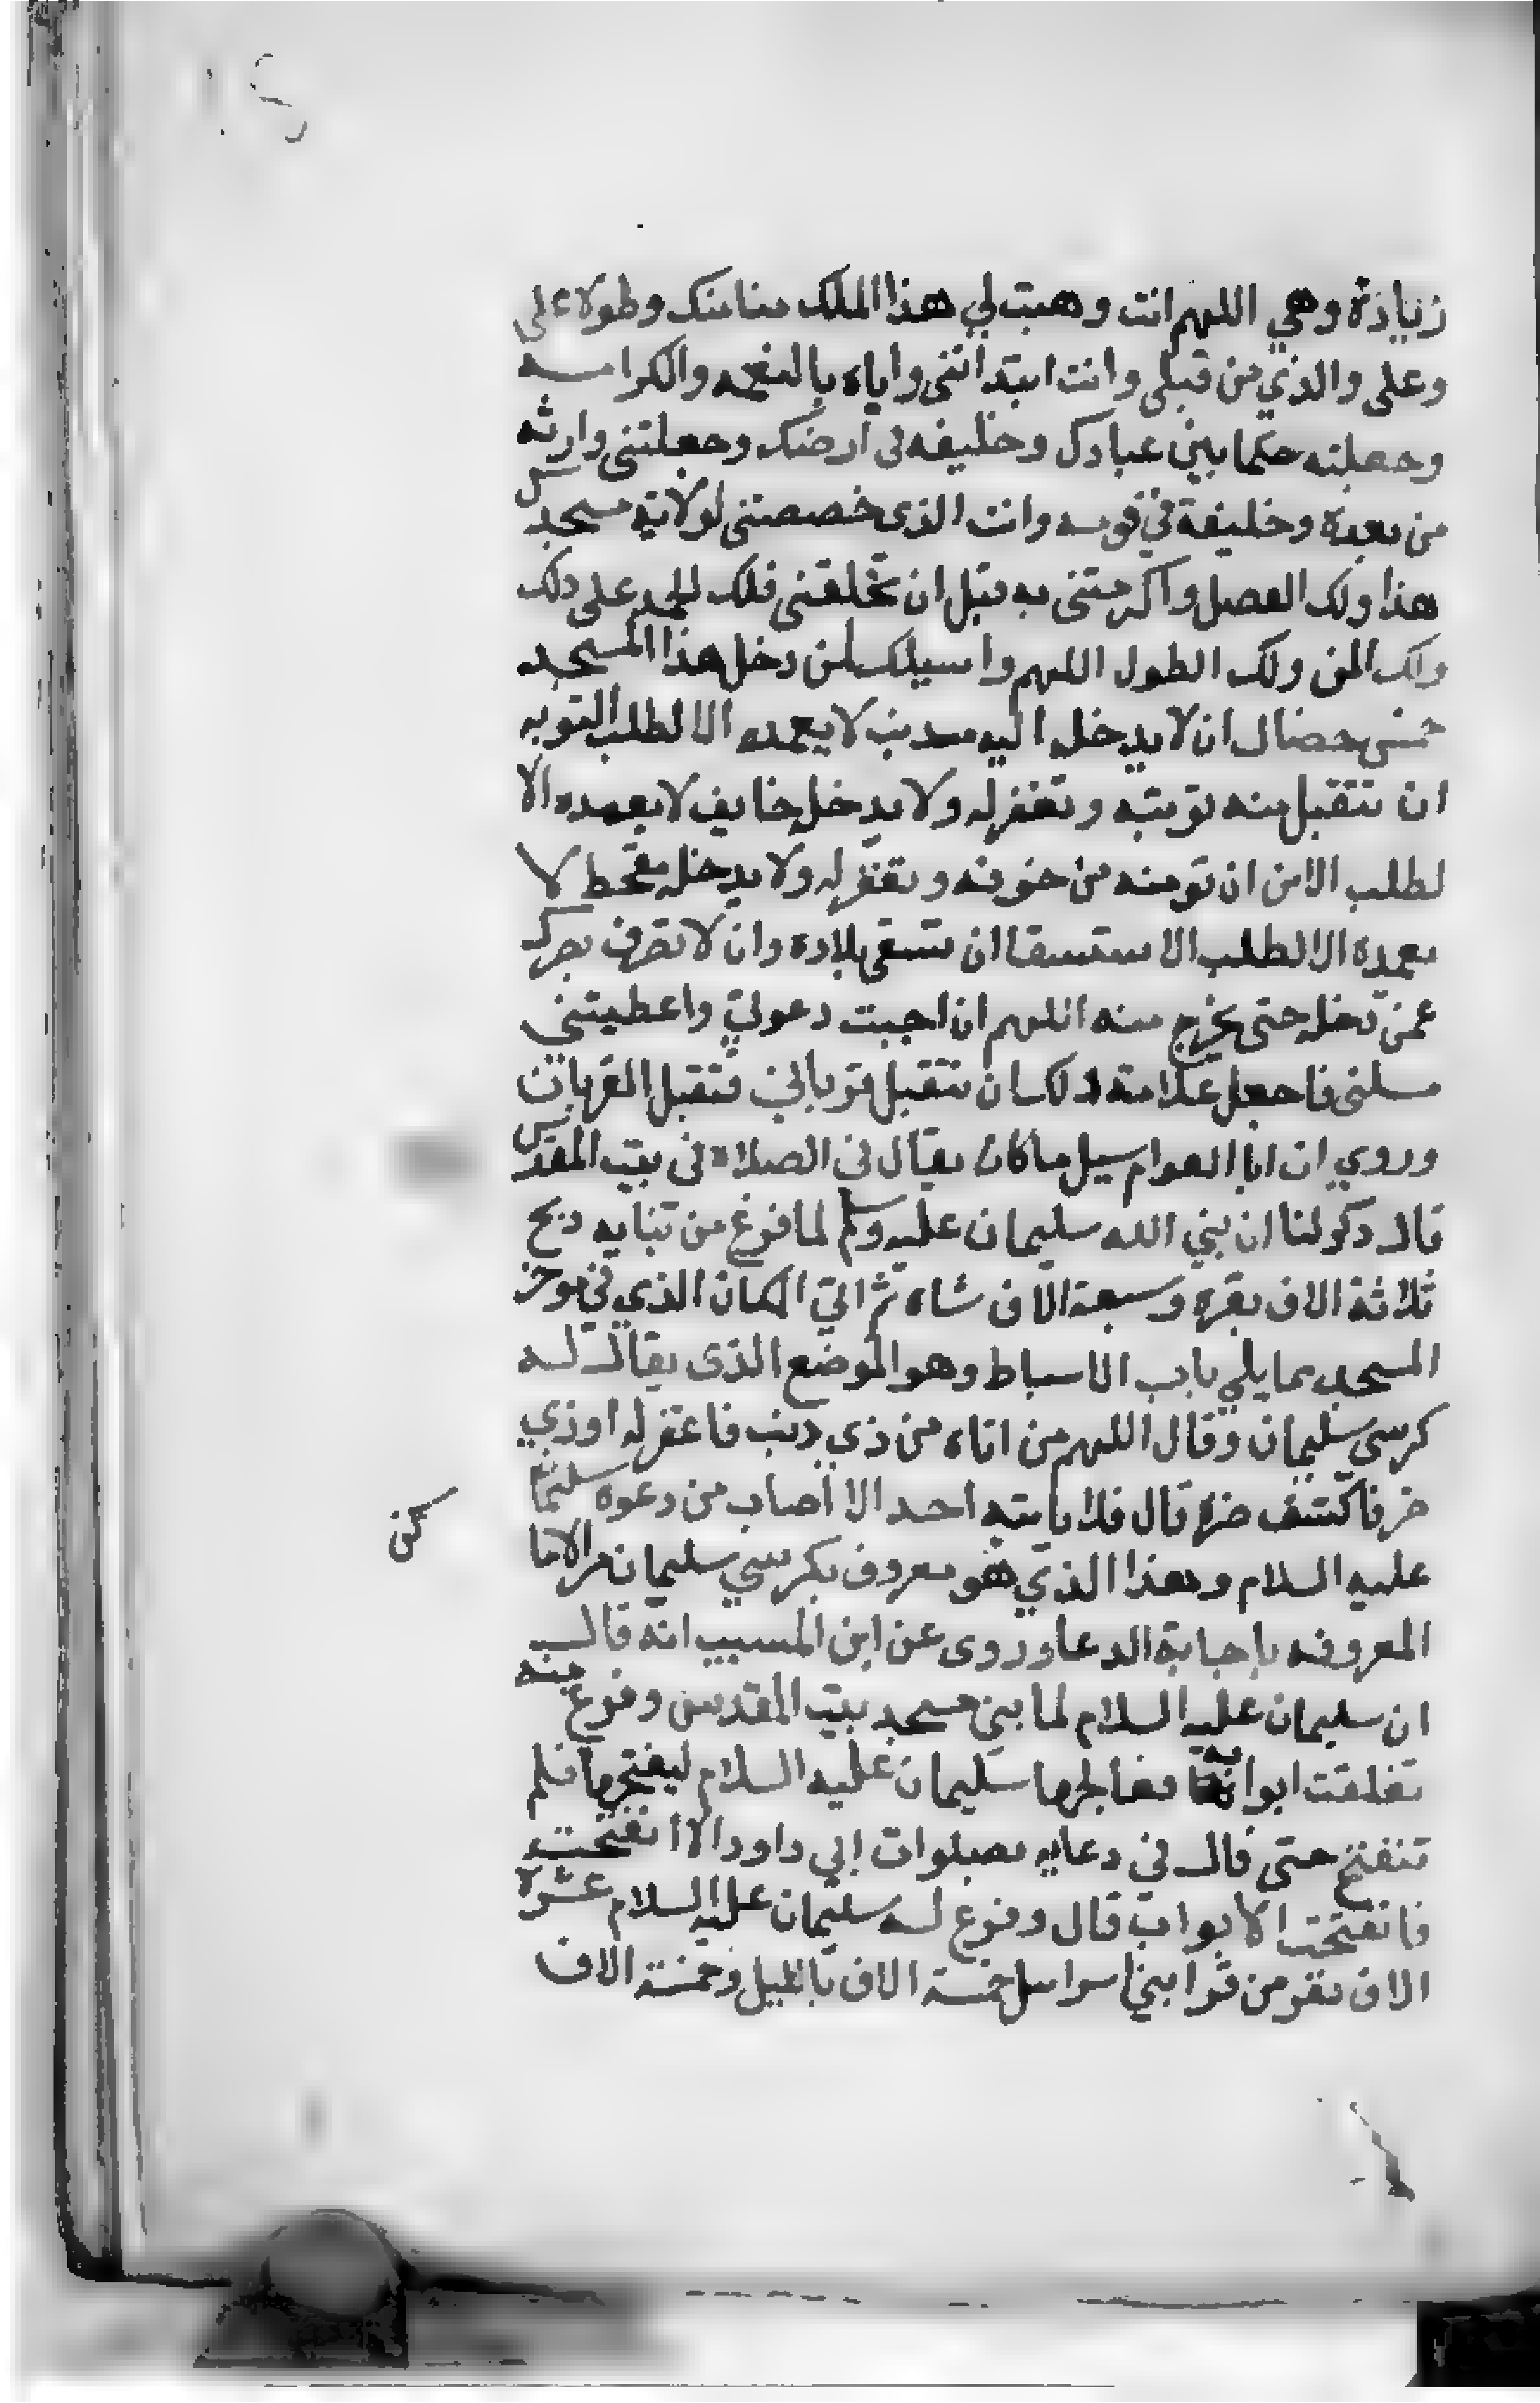 زيادة وهي اللهم انت وهبت لي هذا الملك منا منك وطولا علي
وعلى والدي من قبلي وانت ابتداتني واياه بالنعمه والكرامه
وجعلته حكما بين عبادك وخليفه في ارضك وجعلتني وارثه
من بعده وخليفة في قومه وانت الذي خصصتني لولاية مسجدك
هذا ولك الفضل واكرمتني به قبل ان تخلقني فلك الحمد على ذلك
ولك المن ولك الطول اللهم واسيلك لمن دخل هذا المسجد
خمس خصال ان لا يدخل اليه مذنب لا يعمده الا لطلب التوبه
ان تتقبل منه توبته وتغفر له ولا يدخل خايف لا يعمده الا
لطلب الامن ان تومنه من خوفه وتغفر له ولا يدخله مقحط لا
يعمده الا لطلب الاستسقا ان تسقي بلاده وان لا تصرف بصرك
عمن دخله حتى يخرج منه اللهم ان اجبت دعوتي واعطيتني
مسلتي فاجعل علامة ذلك ان تتقبل قرباني فتقبل القربان
وروي ان ابا العوام سيل ما كان يقال في الصلاة في بيت المقدس
قال ذكر لنا ان نبي الله سليمان عليه وسلم لما فرغ من بنايه ذبح
ثلاثة الاف بقره وسبعة الاف شاه ثم اتى المكان الذي في موخر
المسجد مما يلي باب الاسباط وهو الموضع الذي يقال له
كرسي سليمان وقال اللهم من اتاه من ذي ذنب فاغفر له او ذي
ضر فاكشف ضره قال فلا ياتيه احد الا اصاب من دعوة سليمان
عليه السلام وهذا الذي هو معروف بكرسي سليمان من الاما
كن
المعروفه باجابة الدعا وروى عن ابن المسيب انه قال
ان سليمان عليه السلام لما بني مسجد بيت المقدس وفرغ منه
تغلقت ابوابه فعالجها سليمان عليه السلام ليفتحها فلم
تنفتح حتى قال في دعايه بصلوات ابي داود الا انفتحت
فانفتحت الابواب قال وفرغ له سليمان عليه السلام عشرة
الاف نفر من قرا بني اسرايل خمسة الاف بالليل وخمسة الاف